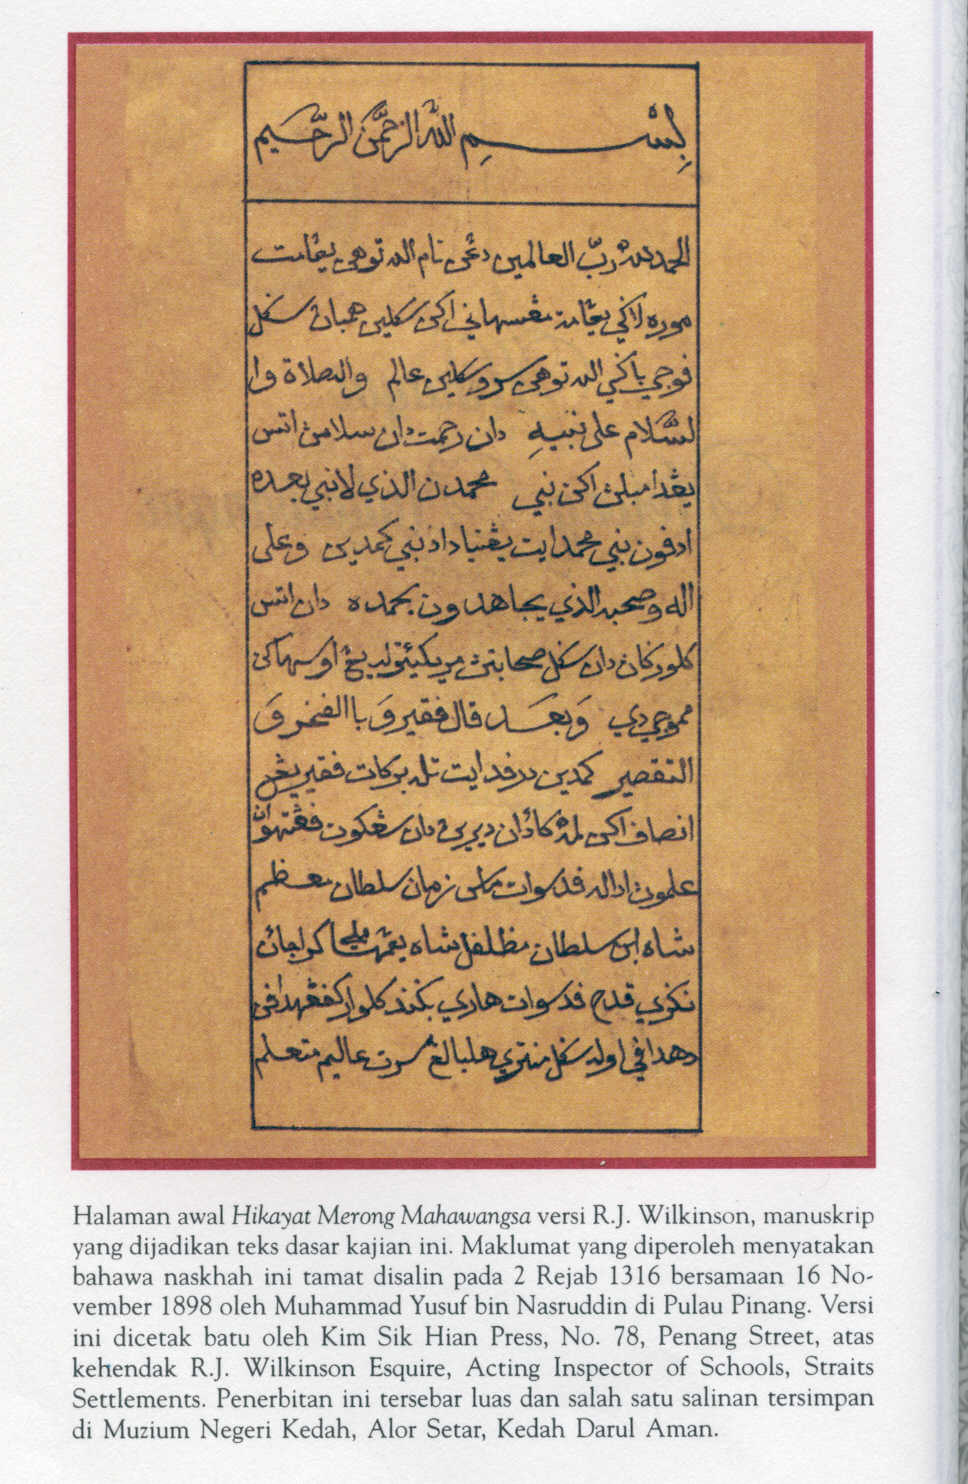 بِسْــــمِ اللّٰه الرَّحْمٰن الرَّحِيم
الحمد لله ربّ العالمين دڠن نام الله توهن يڠامت
موره لاݢي يڠامت مڠسهاني اكن سكلين همبان سݢل
فوجي باݢي الله توهن سرو سكلين عالم والصلاة وا
لسّلام على نبيهِ دان رحمت دان سلامن اتس
يڠد امبلن اكن نبي محمدن الذي لانبي بعده
ادفون نبي محمد ايت يڠتيادا د نبي كمدين وعلى
اله وصحبه الذي يجاهدون بحمده دان اتس
كلورݢان دان سݢل صحابتن مريكئيتوله يڠ اوسهاكن
مموجي دي وَبعـَـد قال فقير وَبا الفخر وَ
التقصير كمدين درفد ايت تله بركات فقير يڠ
انصاف اكن لمه كأدأن ديرين دان سڠكون فڠتهوان
علمون اد اله فد سوات ماس زمان سلطان معـظم
شاه ابن سلطان مظلفل شاه يڠمها مليا كراجأن
نݢري قدح فد سوات هاري بݢند كلوار كفڠهدافن
دهدافي اوله سݢل منتري هلبالڠ سرت عاليم متعـلم
Halaman awal Hikayat Merong Mahawangsa versi R.J. Wilkinson, manuskrip
yang dijadikan teks dasar kajian ini. Maklumat yang diperoleh menyatakan
bahawa naskhah ini tamat disalin pada 2 Rejab 1316 bersamaan 16 No-
vember 1898 oleh Muhammad Yusuf bin Nasruddin di Pulau Pinang. Versi
ini dicetak batu oleh Kim Sik Hian Press, No. 78, Penang Street, atas
kehendak R.J. Wilkinson Esquire, Acting Inspector of Schools, Straits
Settlements. Penerbitan ini tersebar luas dan salah satu salinan tersimpan
di Muzium Negeri Kedah, Alor Setar, Kedah Darul Aman.